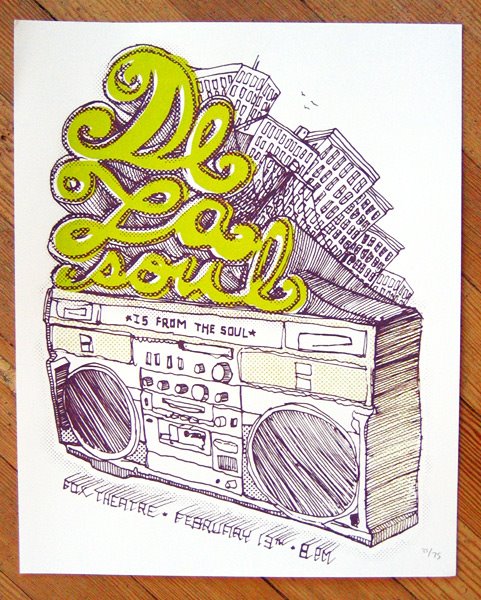 De
La
soul
*IS FROM THE SOUL*
FOX THEATRE • FEBRUARY 13TH • 8PM
/75